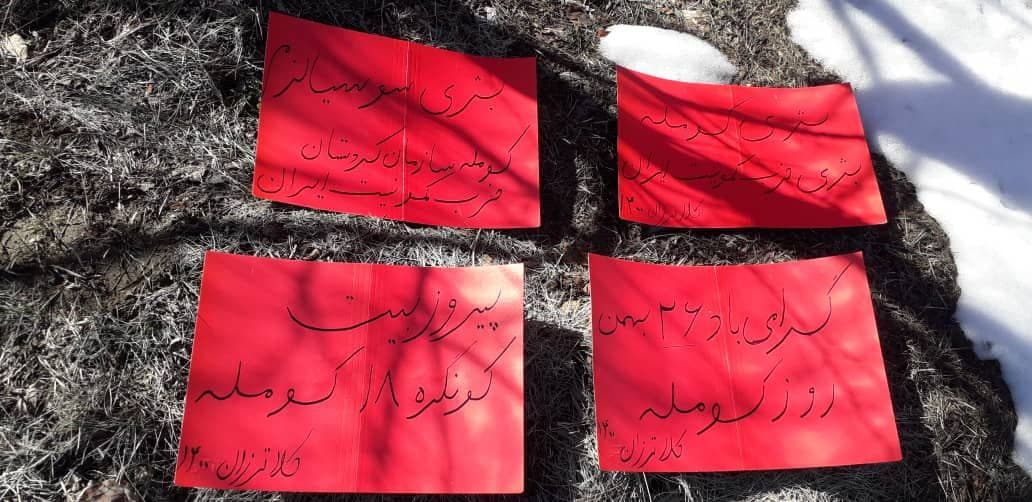 بژی کومله
بژی حزب کمونیست ایران
کلاترزان ۱۴۰۰
بژی سوسیالزم
کومله سازمان کردستان
حزب کمونیست ایران
گرامی باد ۲۶ بهمن
روز کومله
کلاترزان ۱۴۰۰
پیروز بیت
کونگره ۱۸ کومله
کلاترزان ۱۴۰۰